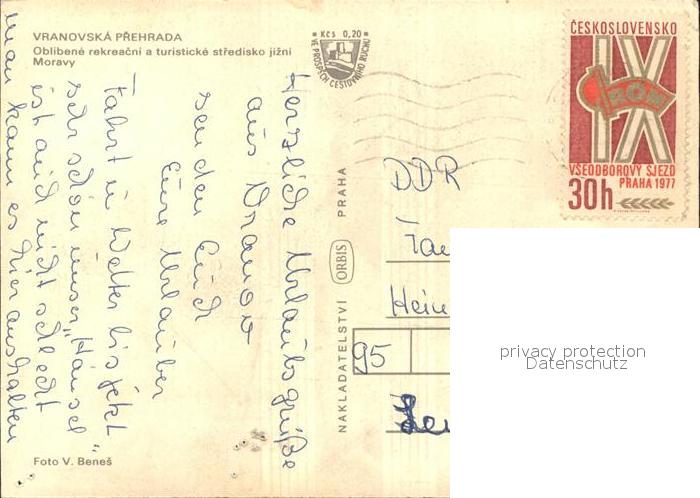 VRANOVSKÁ PŘEHRADA
Oblíbené rekreační a turistické středisko jižní
Moravy
Kčs 0,20
VE PROSPĚCH CESTOVNÍHO RUCHU
ČESKOSLOVENSKO
IX
ROH
VŠEODBOROVÝ SJEZD
PRAHA 1977
30h
Herzliche Urlaubsgrüße
aus Vranov
senden Euch
Eure Urlauber
Fahrt u Wetter bis jetzt
sehr schön unser „Häusel“
ist auch nicht schlecht
man kann es hier aushalten
NAKLADATELSTVÍ ORBIS PRAHA
DDR
Fa
Hein
95
Foto V. Beneš
privacy protection
Datenschutz